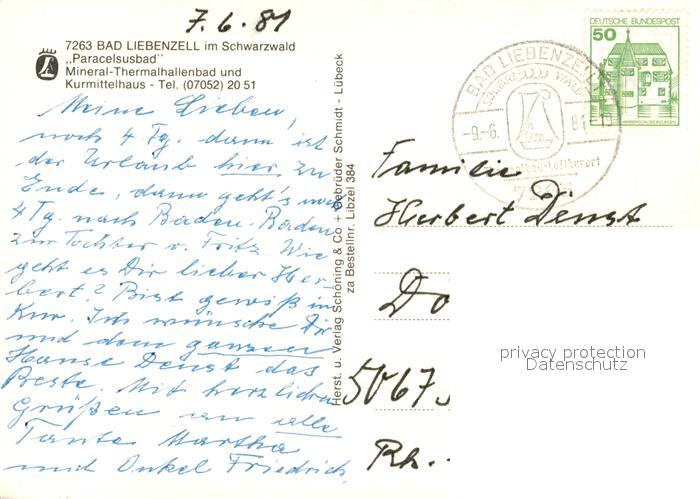 7.6.81
7263 BAD LIEBENZELL im Schwarzwald
„Paracelsusbad"
Mineral-Thermalhallenbad und
Kurmittelhaus - Tel. (07052) 20 51
Meine Lieben,
noch 4 Tg. dann ist
der Urlaub hier, zu
Ende, dann geht's noch
4 Tg. nach Baden-Baden
zur Tochter v. Fritz. Wie
geht es Dir lieber Her-
bert? Bist gewiß in
Kur. Ich wünsche Dir
und dem ganzen
Hause Denst das
Beste. Mit herzlichen
Grüßen an alle
Tante Martha
und Onkel Friedrich.
Herst. u. Verlag Schöning & Co + Gebrüder Schmidt - Lübeck
za Bestellnr. Libzel 384
BAD LIEBENZELL
-9.-6. 81-
DEUTSCHE BUNDESPOST
50
Familie
Herbert Denst
Do
5067
Rh.
privacy protection
Datenschutz